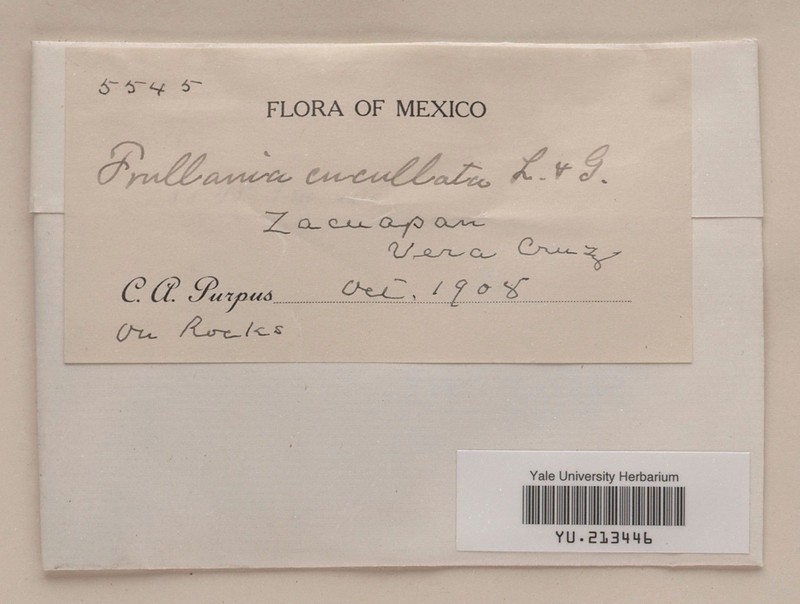 5545
FLORA OF MEXICO
Frullania cucullata L. & G.
Zacuapan
Vera Cruz
C. A. Purpus Oct. 1908
On Rocks
Yale University Herbarium
YU.213446